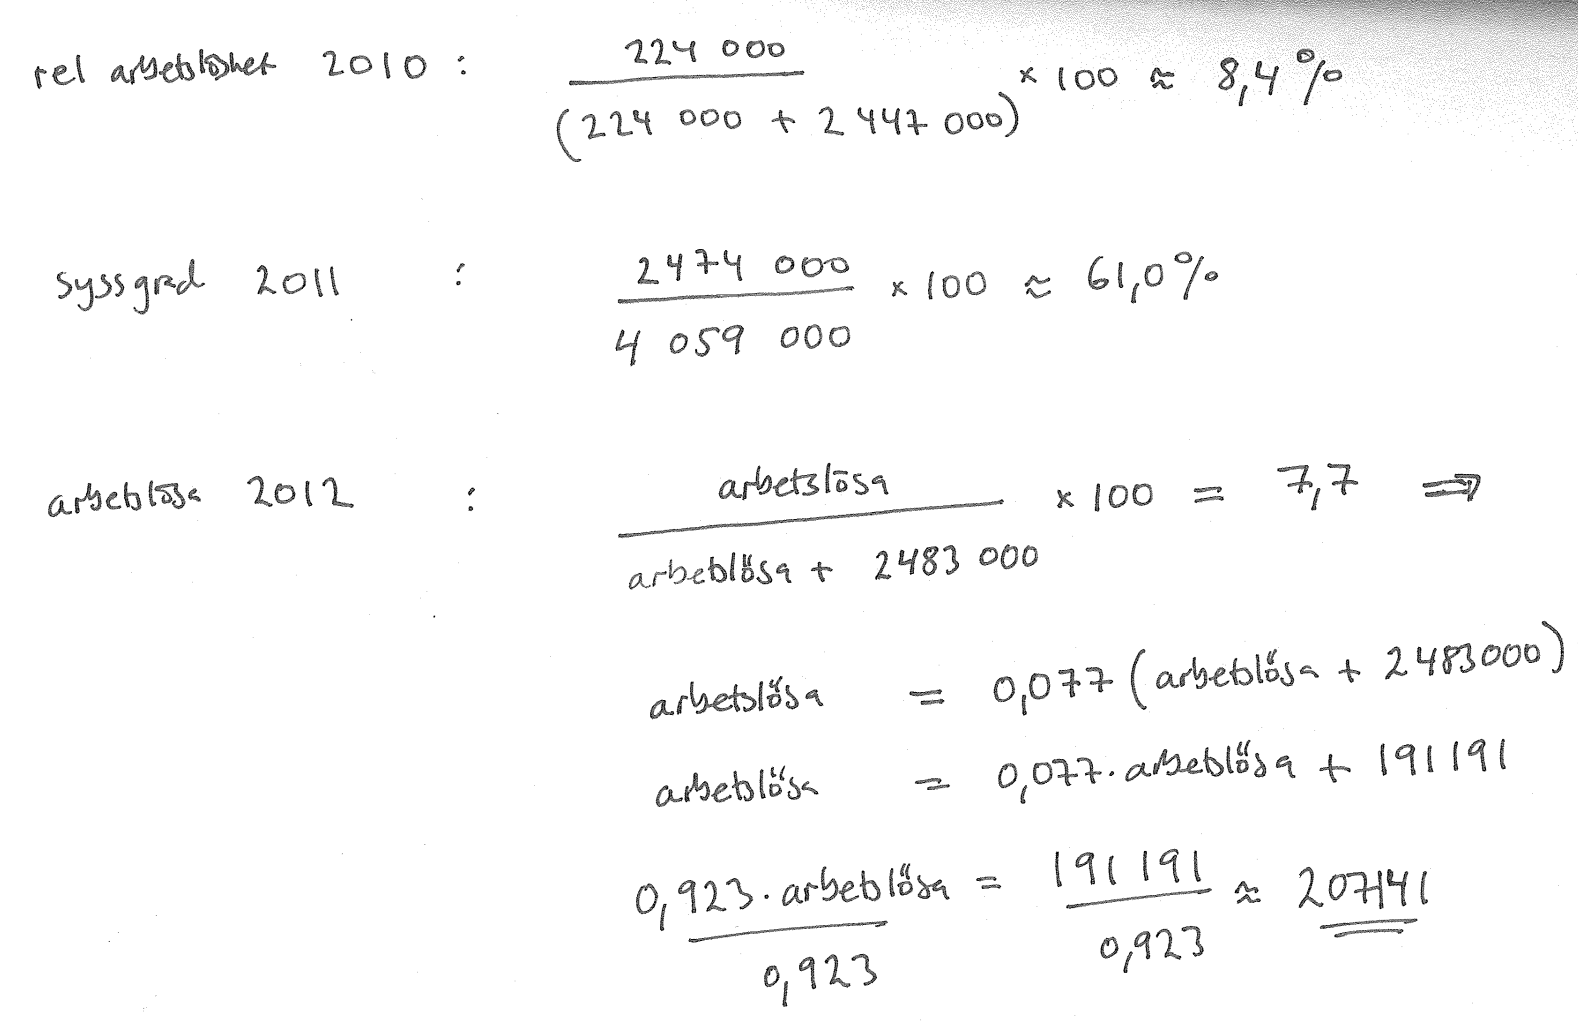 rel arbetslöshet 2010 : 224 000 / (224 000 + 2 447 000) × 100 ≈ 8,4%
syssgrad 2011 : 2474 000 / 4 059 000 × 100 ≈ 61,0%
arbetslösa 2012 : arbetslösa / arbetslösa + 2483 000 × 100 = 7,7 ⇒
arbetslösa = 0,077 (arbetslösa + 2483000)
arbetslösa = 0,077 · arbetslösa + 191191
0,923 · arbetslösa / 0,923 = 191 191 / 0,923 ≈ 207141